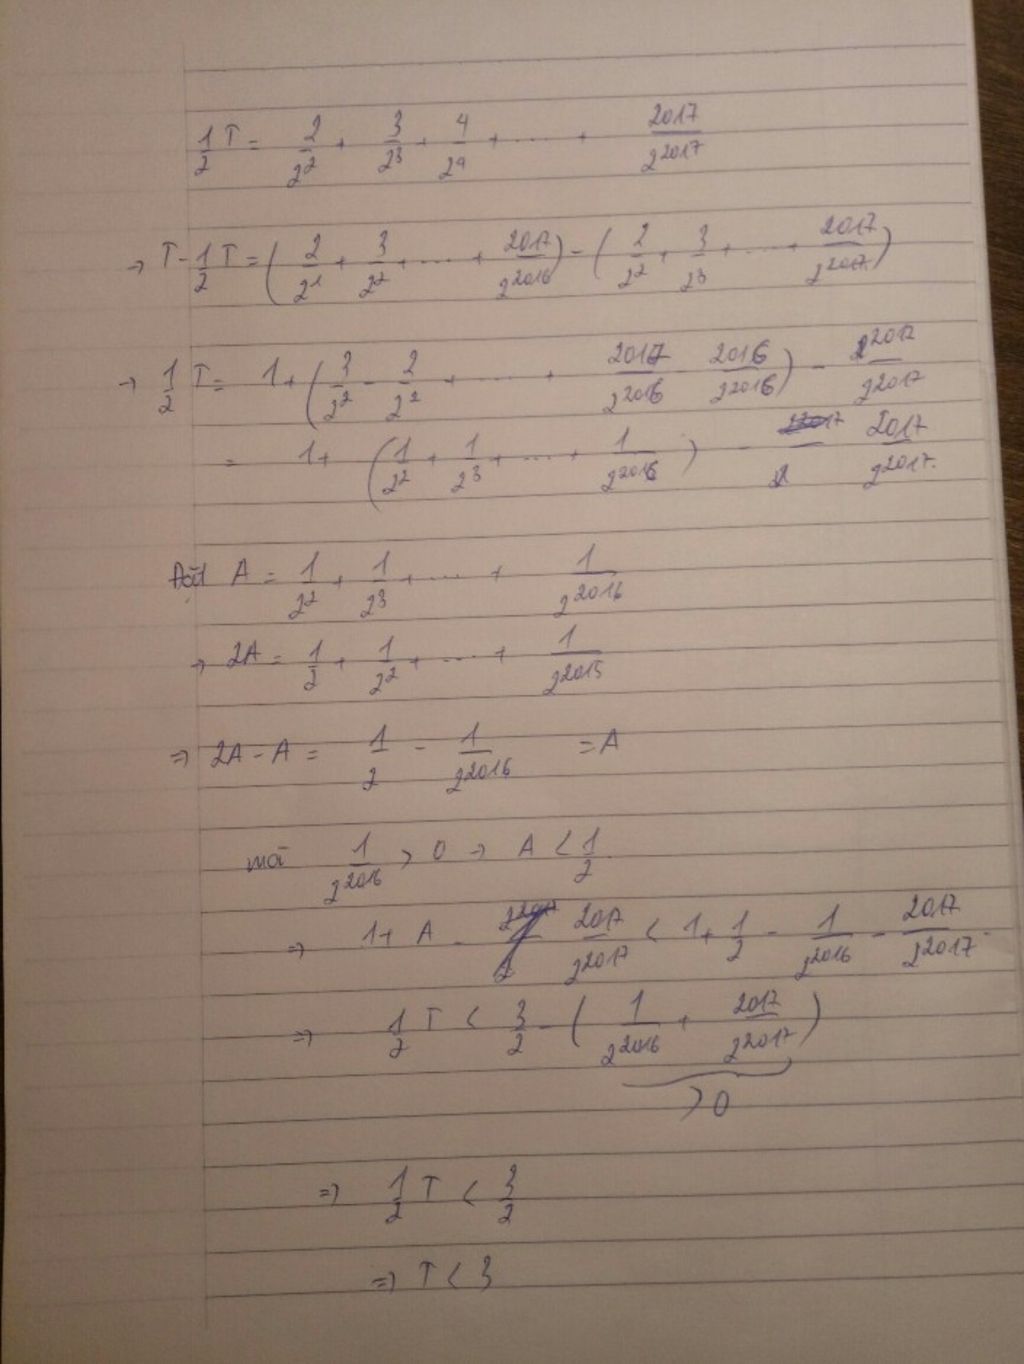 1/2 T = 2/2^2 + 3/2^3 + 4/2^4 + .... + 2017/2^2017
→ T - 1/2 T = (2/2^1 + 3/2^2 + .... + 2017/2^2016) - (2/2^2 + 3/2^3 + .... + 2017/2^2017)
→ 1/2 T = 1 + (3/2^2 - 2/2^2 + .... + 2017/2^2016 - 2016/2^2016) - 2017/2^2017
= 1 + (1/2^2 + 1/2^3 + .... + 1/2^2016) - 2017/2^2017.
Đặt A = 1/2^2 + 1/2^3 + .... + 1/2^2016
→ 2A = 1/2 + 1/2^2 + .... + 1/2^2015
=> 2A - A = 1/2 - 1/2^2016 = A
mà 1/2^2016 > 0 → A < 1/2.
=> 1 + A - 2017/2^2017 < 1 + 1/2 - 1/2^2016 - 2017/2^2017.
=> 1/2 T < 3/2 - (1/2^2016 + 2017/2^2017)
> 0
=> 1/2 T < 3/2
=> T < 3